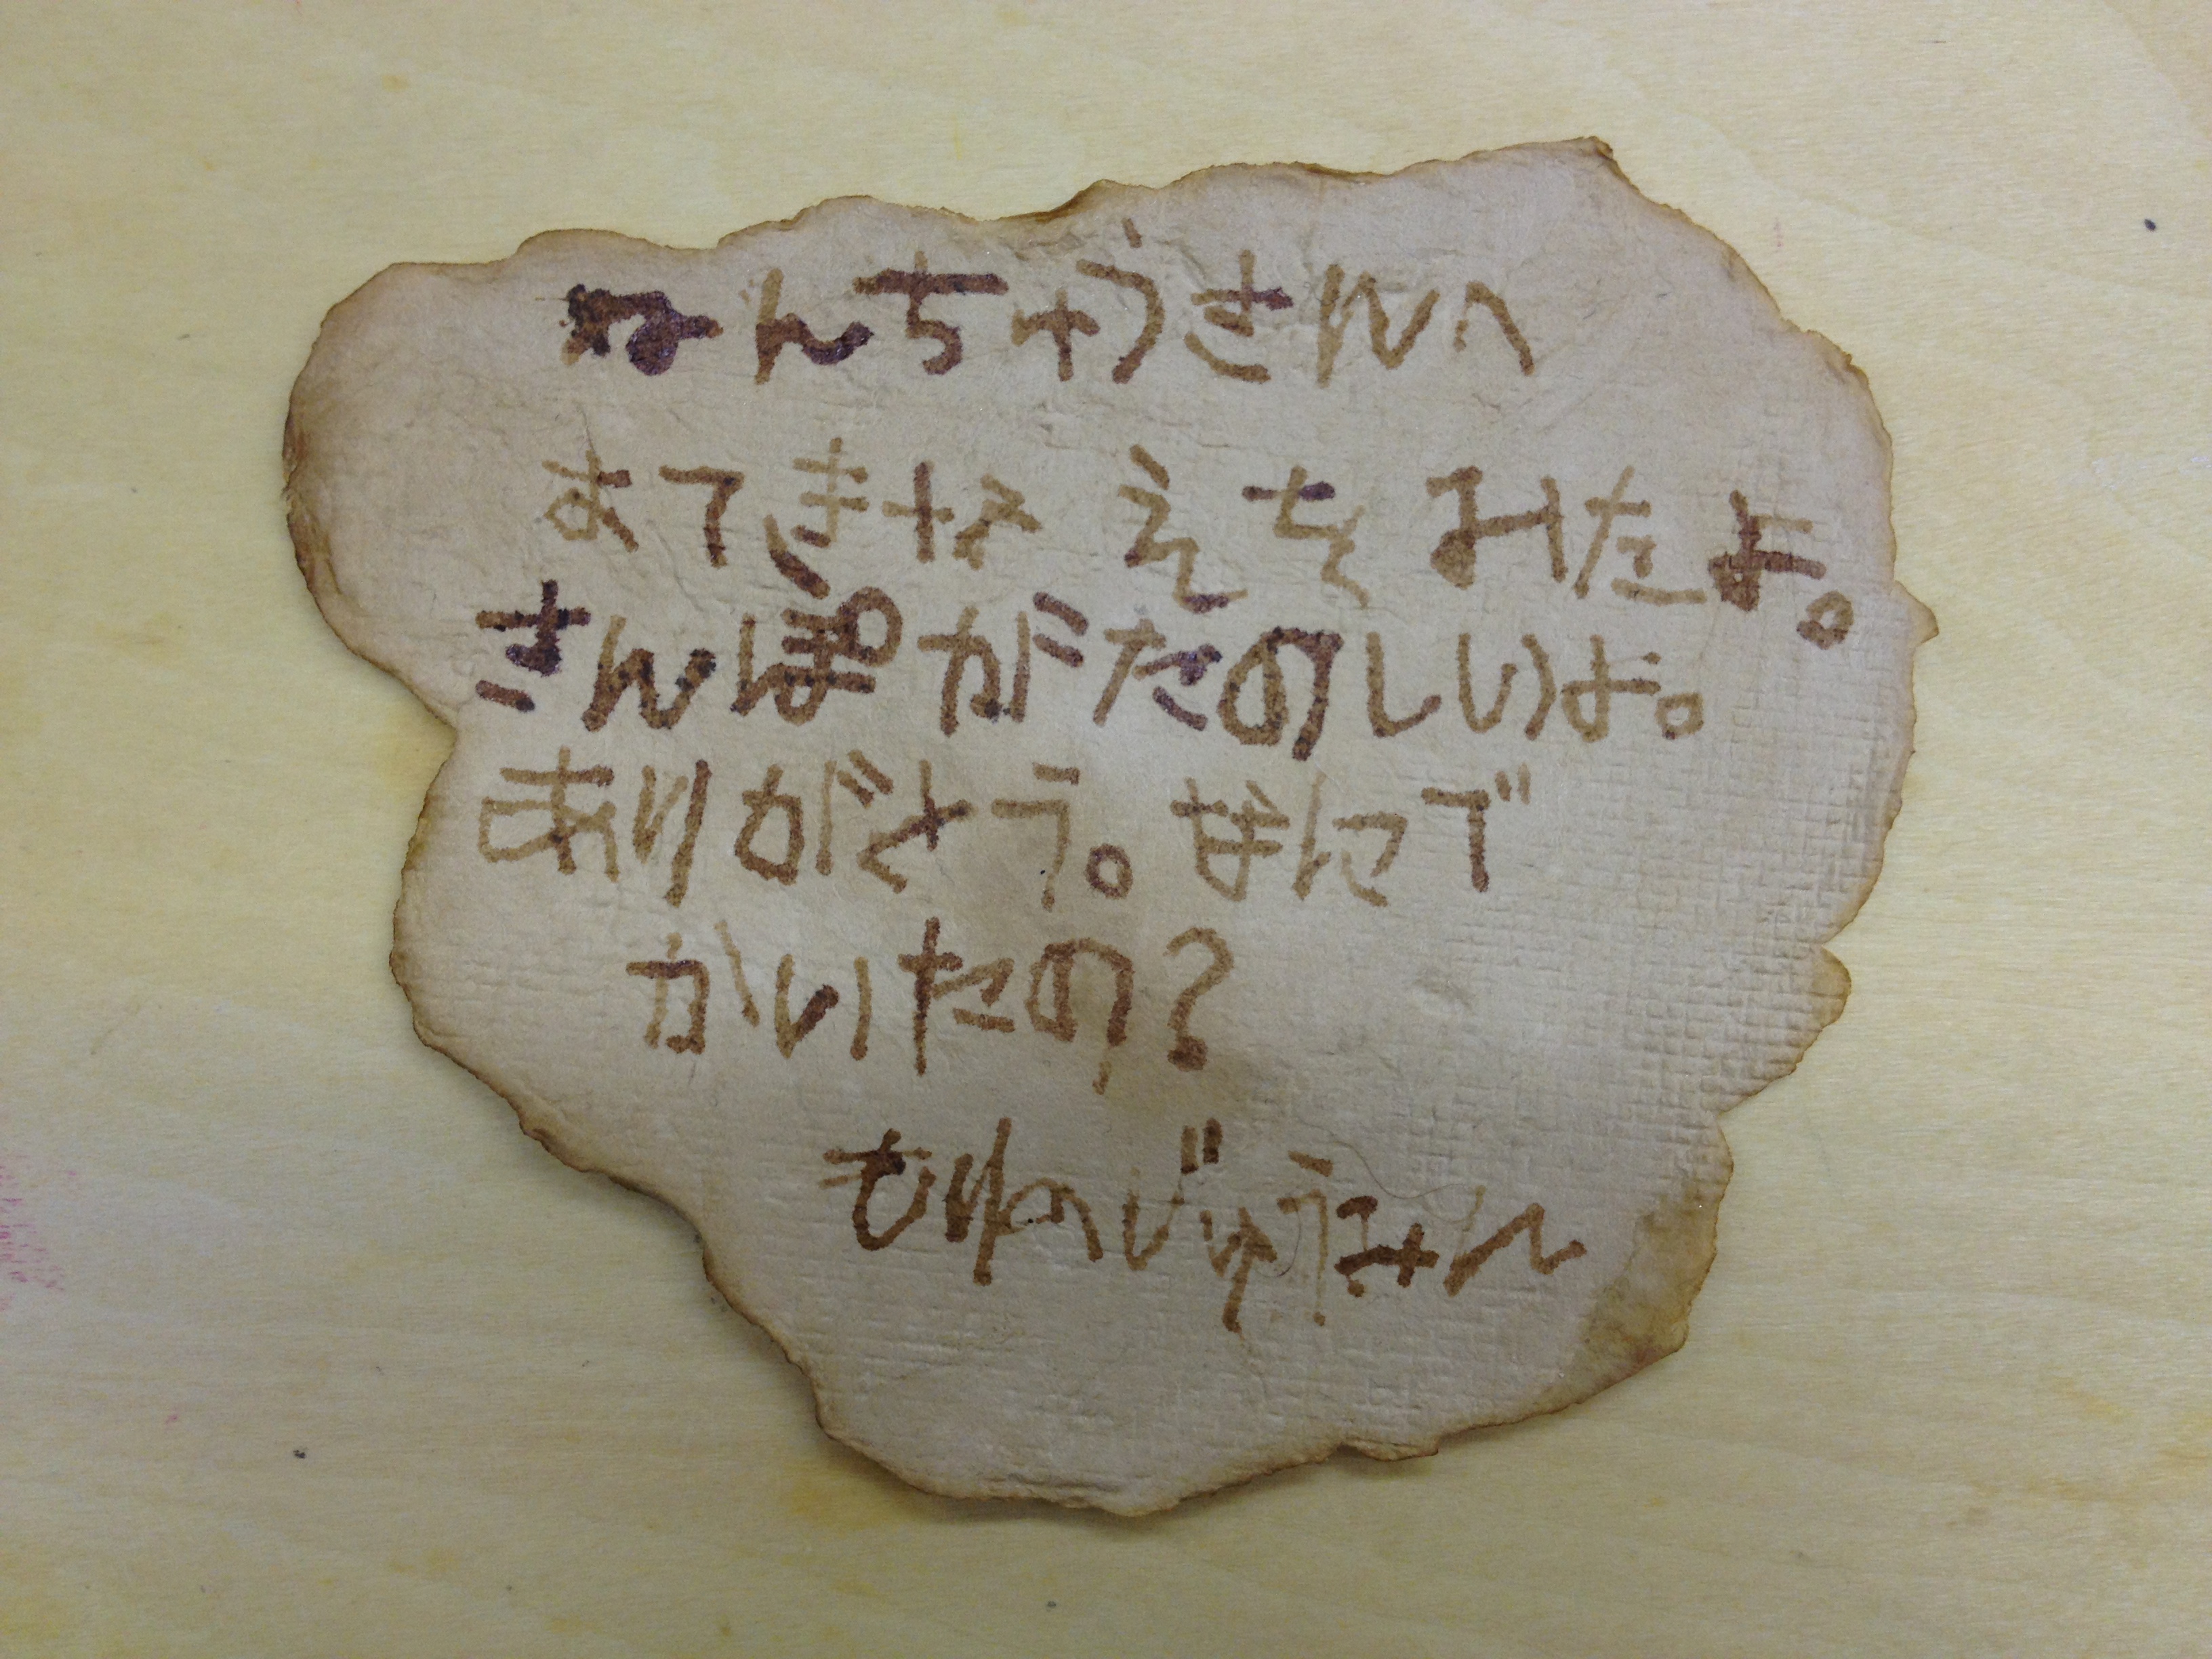 ねんちゅうさんへ
すてきな えを みたよ。
さんぽがたのしいよ。
ありがとう。なにで
かいたの?
もりのじゅうみん